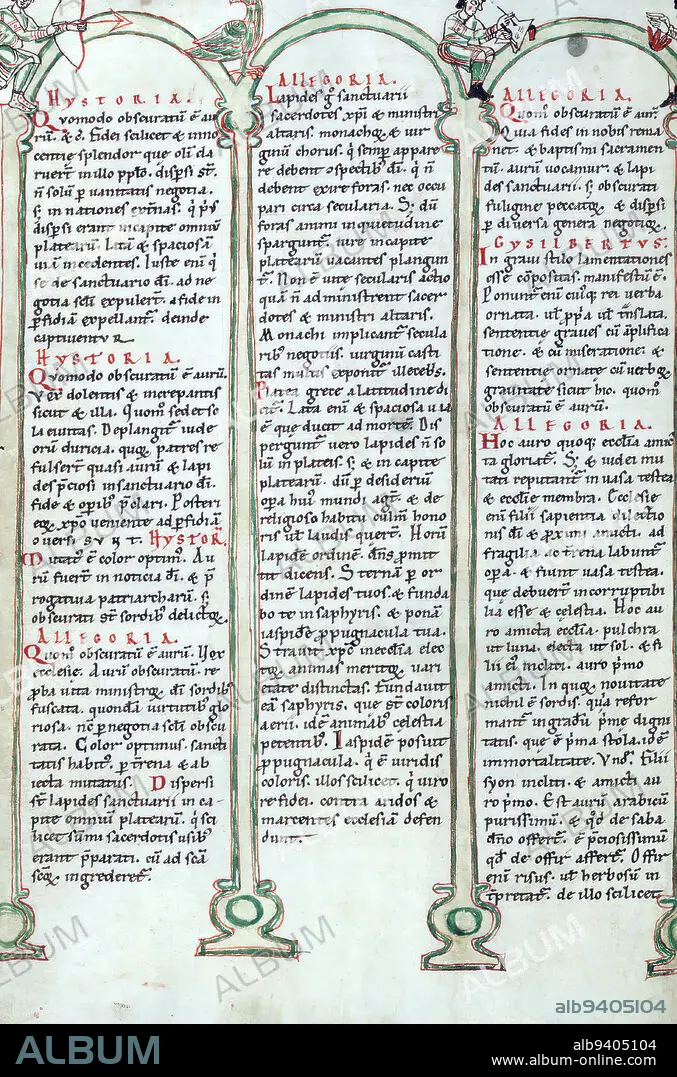 HYSTORIA.
Quomodo obscuratū ē au
rū. & c̄. Fidei scilicet & inno
centie splendor que olī da
ruerī in illo pplō. dispsi st̄.
ñ solū p uanitatis negotia.
s; in nationes ext̄nas. q̓ p̓s
dispsi erant in capite omniū
platearū. Latā & spaciosā
uiā incedentes. Iuste enī q̓
se de sanctuario dī. ad ne
gotia sclī expulerī. a fide in
pfidiam expellantꝛ. deinde
captiuentur
HYSTORIA.
Quomodo obscuratū ē aurū.
Vox dolentis & increpantis
sicut & illa. Quom̄ sedet so
la ciuitas. Deplangitꝛ iude
orū duricia. quoꝝ patres re
fulserī quasi aurū & lapi
des p̄ciosi in sanctuario dī.
fide & opib; p̄clari. Posteri
eoꝝ xp̄o ueniente ad pfidiā
ouersi SVNT. HYSTOR.
Mutatꝰ ē color optimꝰ. Au
rū fuerī in noticia dī. & p̄
rogatiua patriarcharū. s;
obscurati st̄ sordib; delictoꝝ.
ALLEGORIA.
Quom̄ obscuratū ē aurū. Vox
ecclesie. Aurū obscuratū. re
pba uita ministroꝝ dī sordib;
fuscata. quondā uirtutib; glo
riosa. nc̄ p negotia sclī obscu
rata. Color optimus. sancti
tatis habitꝰ. p t̄rena & ab
iecta mutatus. Dispersi
st̄ lapides sanctuarii in ca
pite omniū platearū. q̓ sci
licet sūmi sacerdotis usib;
erant p̄parati. cū ad scā
scōꝝ ingrederetꝛ.
ALLEGORIA.
Lapides ḡ sanctuarii
sacerdotes xp̄i & ministri
altaris. monachoꝝ & uir
ginū chorus. q̓ semp appare
re debent ɔspectib; dī. q̓ ñ
debent exire foras. nec occu
pari circa secularia. S; dū
foras animi inquietudine
sparguntꝛ. iure in capite
platearū uacantes plangun
tꝛ. Non ē uite secularis actio
quā ñ administrent sacer
dotes & ministri altaris.
Monachi implicantꝛ secula
rib; negotiis. uirginū casti
tas multis exponitꝛ illecebꝛis.
Platea grece a latitudine di
citꝛ. Lata enī & spaciosa uia
ē que ducit ad mortē. Dis
pguntꝛ uero lapides ñ so
lū in plateis. s; & in capite
platearū. dū p desideriū
opa huiꝰ mundi agt̄. & de
religioso habitu culmī hono
ris ul̄ laudis querī. Horū
lapidū ordinē dn̄s promit
tit dicens. Sternam p or
dinē lapides tuos. & funda
bo te in saphyris. & ponā
iaspidē ppugnacula tua.
Strauit xp̄c inecclesia elec
toꝝ animas meritoꝝ uari
etate distinctas. Fundauit
eā saphyris. que st̄ coloris
aerii. id ē animab; celestia
petentib;. Iaspidem posuit
ppugnacula. q̓ ē uiridis
coloris. illos scilicet q̓ uiro
re fidei. contra aridos &
marcentes ecclesiā defen
dunt.
ALLEGORIA.
Quom̄ obscuratū ē aurū.
Quia fides in nobis rema
net. & baptismi sacramen
tū. aurū uocamur. & lapi
des sanctuarii. s; obscurati
fuligine peccatoꝝ. & dispsi
p diuersa genera negotioꝝ.
GYSILBERTVS:
In graui stilo lamentationes
esse cōpositas. manifestū ē.
Ponuntꝛ enī cuiq; rei uerba
ornata. ul̄ ppa. ul̄ t̄nslata.
sententie graues cū āplifica
tione. & cū miseratione. &
sententie ornate cū uerboꝝ
grauitate sicut hic. quom̄
obscuratū ē aurū.
ALLEGORIA.
Hoc auro quoq; ecclesia amic
ta gloriatꝛ. S; & iudei mu
tati reputantꝛ in uasa testea
& ecclesie membra. Ecclesie
enī filii sapientia dilectio
nis dī & pximi amicti. ad
fragilia ac t̄rena labuntꝛ
opa. & fiunt uasa testea.
que debuerī incorruptibi
lia esse & celestia. Hoc au
ro amicta ecclesia. pulchra
ut luna. electa ut sol. & fi
lii eī incliti. auro p̄mo
amicti. In quoꝝ nouitate
nichil ē sordis. qua refor
mantꝛ in gradū p̄me digni
tatis. que ē p̄ma stola. id ē
immortalitate. Vnd̄. Filii
syon incliti. & amicti au
ro p̄mo. Est aurū arabicū
purissimū. & qd̄ de saba
dn̄o offertꝛ. ē p̄ciosissimū
qd̄ de offir affertꝛ. Offir
enī risus. ul̄ herbosum in
t̄pretatꝛ. de illo scilicet
alb9405104
ALBUM
alb9405104
www.album-online.com